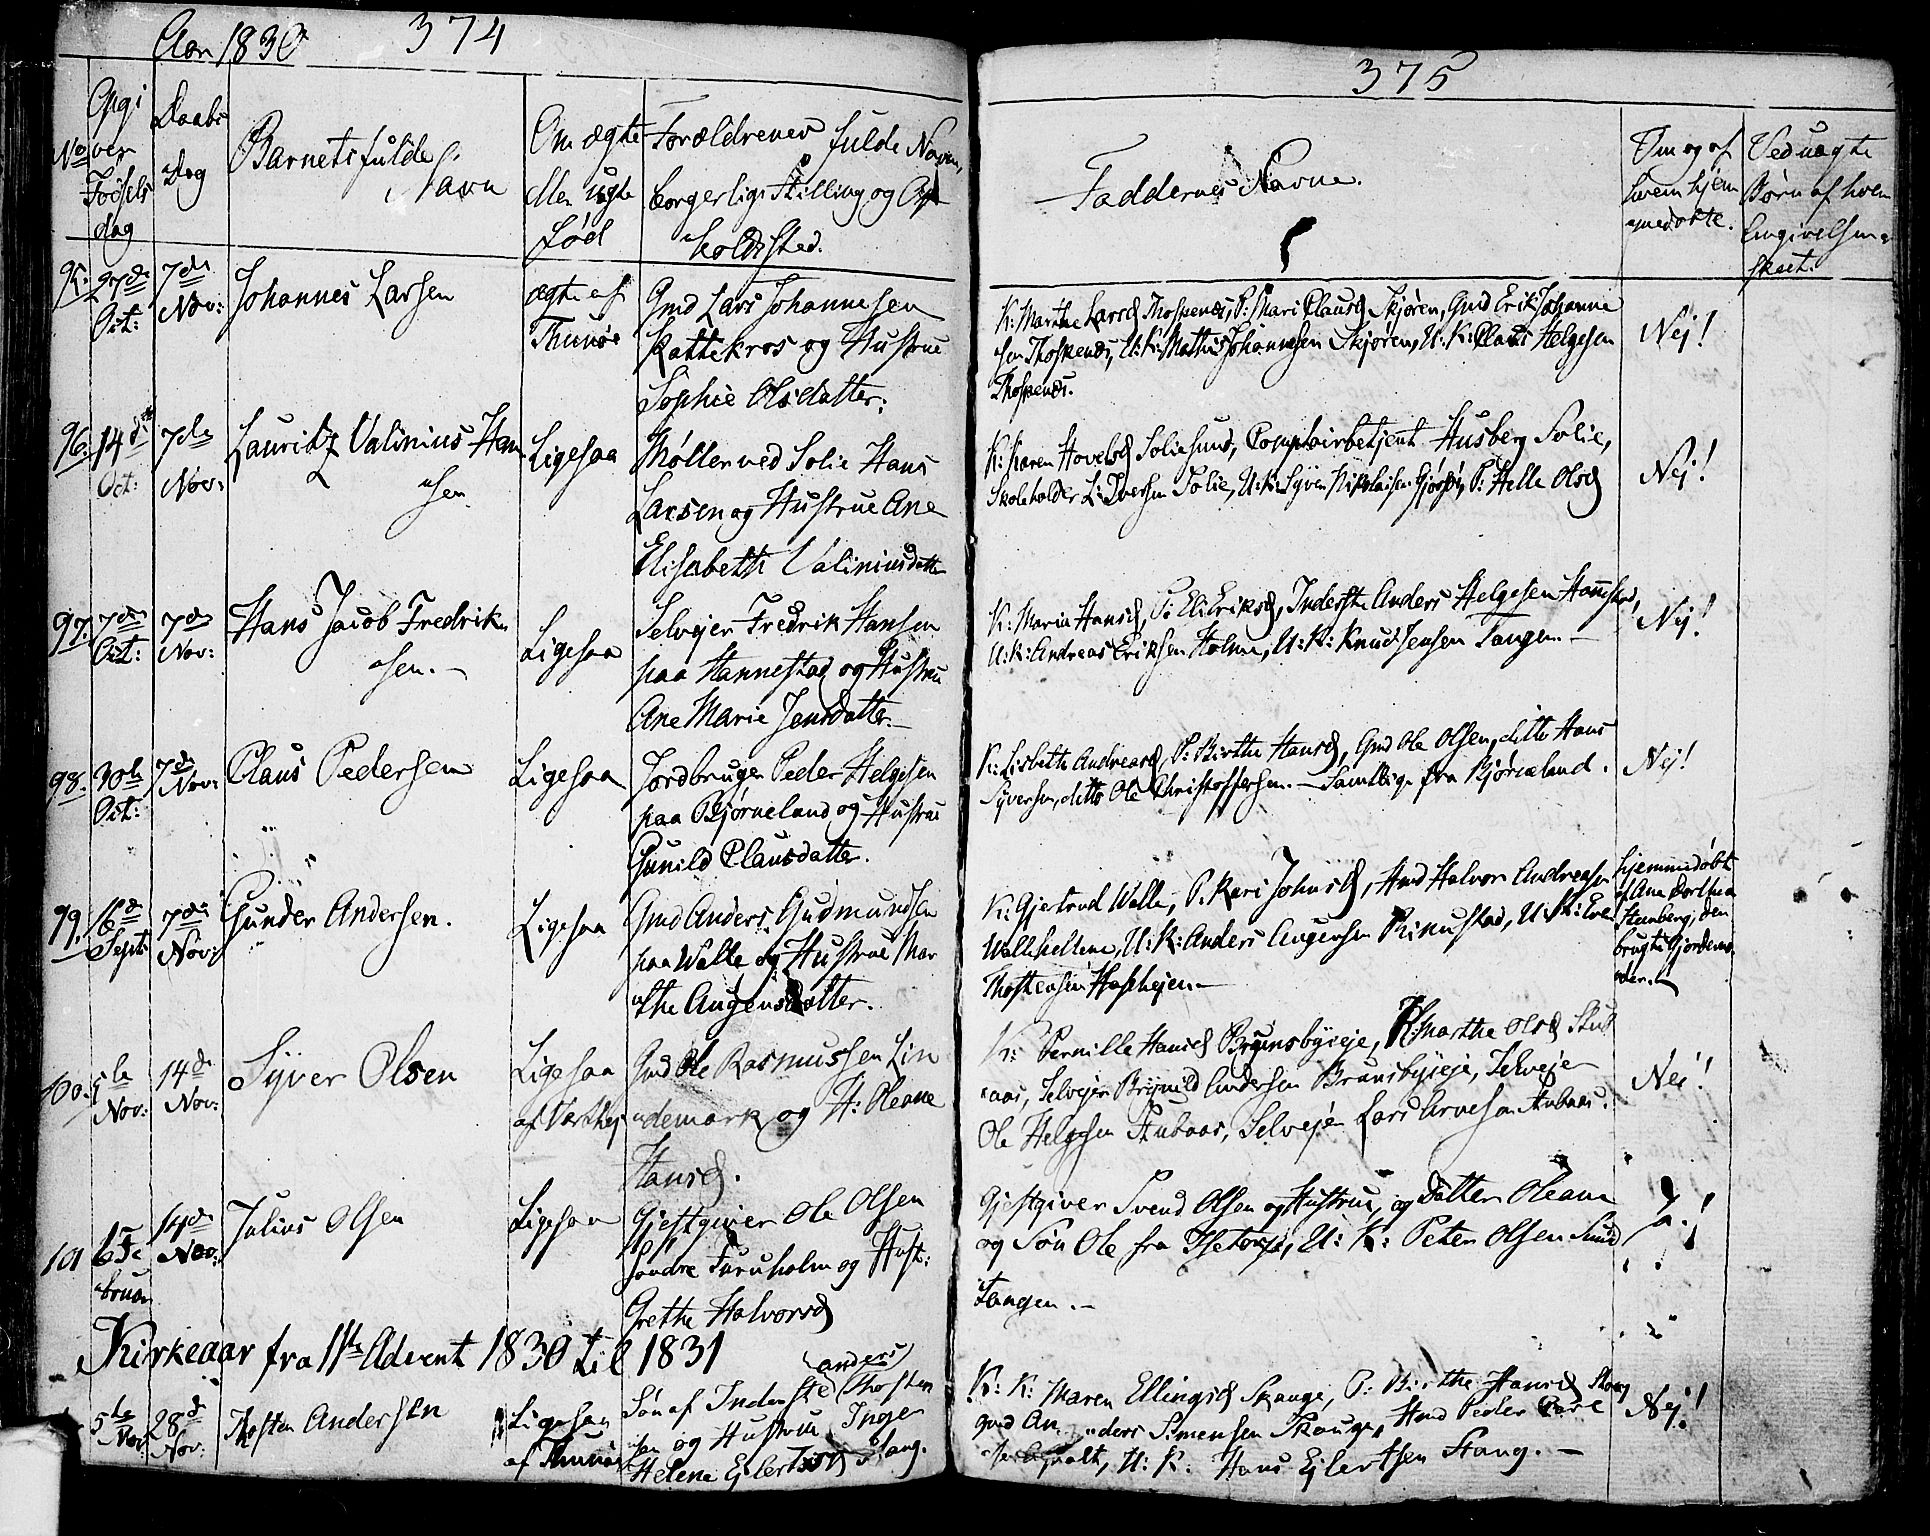 Aar 1830 374
No
Opgi
ven
Fødsels
dag
Daabs
Dag
Barnets fulde
Navn
Om ægte
eller uægte
Fød
Forældrenes fulde Navn,
borgerlige Stilling og Op-
holdssted.
95. 27de Oct: 7de Nov: Johannes Larsen
ægte af
Thunøe
Gmd Lars Johannesen
Kattekros og Hustrue
Sophie Olsdatter:
96. 14de Oct: 7de Nov: Lauritz Valinius Han
sen
Ligesaa
Møller ved Solie Hans
Larsen og Hustrue Ane
Elisabeth Valiniusdatter
97. 7de Oct: 7de Nov: Hans Jacob Fredrik
sen. —
Ligesaa
Selvejer Fredrik Hansen
paa Hannestad og Hustru
Ane Marie Jensdatter. —
98. 30te Oct: 7de Nov: Claus Pedersen
Ligesaa
Jordbruger Peder Helgesen
paa Bjørneland og Hustrue
Gunild Clausdatter.
99. 16de Septb 7de Nov: Gunder Andersen.
Ligesaa
Gmd Anders Gudmundsen
paa Walle og Hustrue Mar
the Augensdatter.
100. 5te Nov: 14de Nov: Syver Olsen
Ligesaa
Gmd Ole Rasmussen Lin
demark og H: Oleane
Hansd.
101 6 Fe
bruar
14de Nov: Julius Olsen
Ligesaa
Gjestgiver Ole Olsen
Søndre Furuholm og Hust:
Grethe Halvorsd
Kirkeaar fra 1ste Advent 1830 til 1831
5te Nov: 28de Nov: Thosten Andersen
Ligesaa
af Thunøe
Søn af Inderste Anders Thosten
sen og Hustrue Inger
Helene Ejlertsd Stang.
375
Faddernes Navne.
Om og af
hvem hjem
medøbte.
Ved uægte
Børn af hvem
Angivelsen er
skeet.
K: Marthe Larsd Thospendi, P: Mari Clausd Skjøren, Gmd Erik Johanne
sen Thospendi, U: K: Mathis Johannesen Skjøren, U: K: Claus Helgesen
Thospendi.
Nej!
K: Karen Hovelsd Soliesund, Comptoirbetjent Husberg Solie,
Skoleholder L: Iversen Solie, U: K: Syver Nikolaisen, P: Helle Olsd
Nej!
K: Maria Hansd, P: Eli Eriksd, Inderste Anders Helgesen Hannestad,
U: K: Andreas Eriksen Holme, U: K: Knud Jensen Tangen. —
Nej!
K: Lisbeth Andreasd, P: Birthe Hansd, Gmd Ole Olsen, ditto Hans
Syversen, ditto Ole Christoffersen. — Samtlige fra Bjørneland.
Nej!
K: Gjertrud Walle, P: Kari Johnsd, Gmd Halvor Andreasen
Wallehellene, U: K: Anders Augensen Rinustad, U: K: Even
Thostensen Haslehejen —
hjemmedøbt
af Ane Dorthea
Stenberg, den
brugte Gjordemo
der.
K: Pernille Hansd Brunsbyeje, P: Marthe Olsd Stub
aas, Selvejer Brynild Andersen Brunsbyeje, Selvejer
Ole Helgesen Stubaas, Selvejer Lars Arvesen Stubaas.
Nej!
Gjestgiver Svend Olsen og Hustrue, og Datter Oleane
og Søn Ole fra Isetorp, U: K: Peter Olsen Sund
Tangen. —
Ja!
K: K: Maren Ellingsd Skauge, P: Birthe Hansd
gmd An ders Simensen Skauge, Gmd Peder
U: K: Hans Ejlertsen Stang. —
Nej!